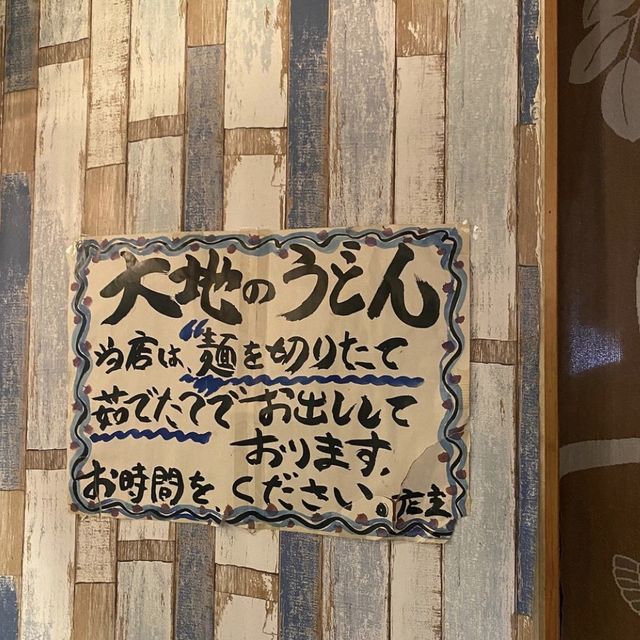 大地のうどん
当店は、“麺を切りたて
茹でたてで お出しして
おります。
お時間を、ください。店主